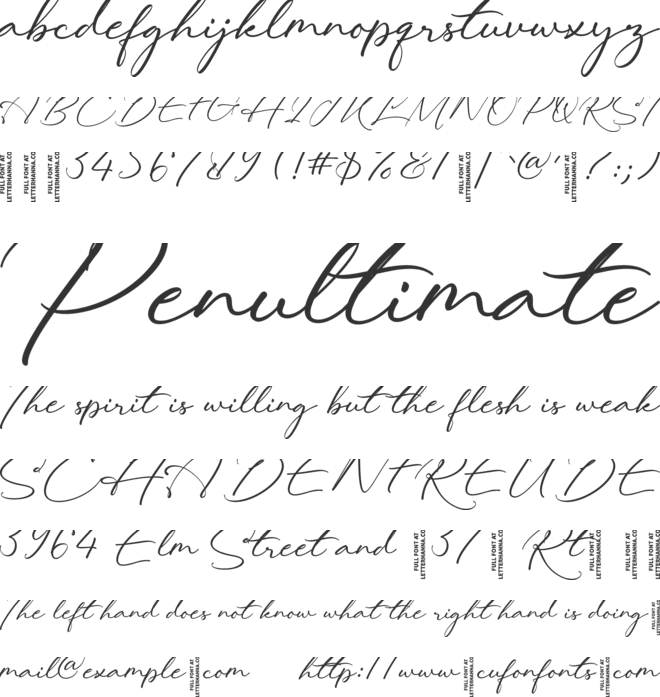 abcdefghijklmnopqrstuvwxyz
ABCDEFGHIJKLMNOPQRST
FULL FONT AT LETTERHANNA.CO FULL FONT AT LETTERHANNA.CO FULL FONT AT LETTERHANNA.CO 3456789(!#$%&/ FULL FONT AT LETTERHANNA.CO |`@´ FULL FONT AT LETTERHANNA.CO ?:;)
Penultimate
The spirit is willing but the flesh is weak
SCHADENFREUDE
3964 Elm Street and FULL FONT AT LETTERHANNA.CO 3/ FULL FONT AT LETTERHANNA.CO Rt FULL FONT AT LETTERHANNA.CO FULL FONT AT LETTERHANNA.CO FULL FONT AT LETTERHANNA.CO
The left hand does not know what the right hand is doing FULL FONT AT LETTERHANNA.CO
mail@example FULL FONT AT LETTERHANNA.CO com http://www FULL FONT AT LETTERHANNA.CO cufonfonts FULL FONT AT LETTERHANNA.CO com